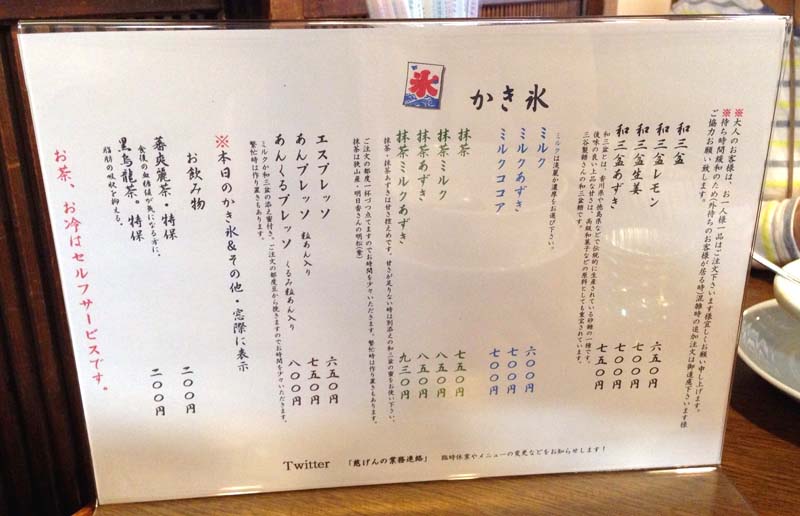 氷
かき氷
※大人のお客様は、お一人様一品はご注文下さいます様宜しくお願い申し上げます。
※待ち時間緩和のため(外待ちのお客様が居る時)混雑時の追加注文は御遠慮下さいます様
ご協力お願い致します。
和三盆 六五〇円
和三盆レモン 七〇〇円
和三盆生姜 七〇〇円
和三盆あずき 七五〇円
和三盆とは、香川県や徳島県などで伝統的に生産されている砂糖の一種です。
後味の良い上品な甘さは、高級和菓子などの原料としても重宝されています。
三谷製糖さんの和三盆糖です。
ミルクは淡麗か濃厚をお選び下さい。
ミルク 六〇〇円
ミルクあずき 七〇〇円
ミルクココア 七〇〇円
抹茶 七五〇円
抹茶ミルク 八五〇円
抹茶あずき 八五〇円
抹茶ミルクあずき 九三〇円
抹茶・抹茶あずきは甘さ控えめです。甘さが足りない時は別添えの和三盆の蜜をお使い下さい。
ご注文の都度一杯づつ点てますのでお時間を少々いただきます。繁忙時は作り置きもあります。
抹茶は狭山産・明日香さんの明松(葉)
エスプレッソ 六五〇円
あんブレッソ 粒あん入り 七五〇円
あんくるブレッソ くるみ粒あん入り 八〇〇円
ミルクか和三盆の添え蜜付き。ご注文の都度豆から挽きますのでお時間を少々いただきます。
繁忙時は作り置きもあります。
※本日のかき氷&その他・窓際に表示
お飲み物 二〇〇円
蕃爽麗茶・特保 二〇〇円
食後の血糖値が気になる方に、
黒烏龍茶。特保
脂肪の吸収を抑える。
お茶、お冷はセルフサービスです。
Twitter 「慈げんの業務連絡」 臨時休業やメニューの変更などをお知らせします!